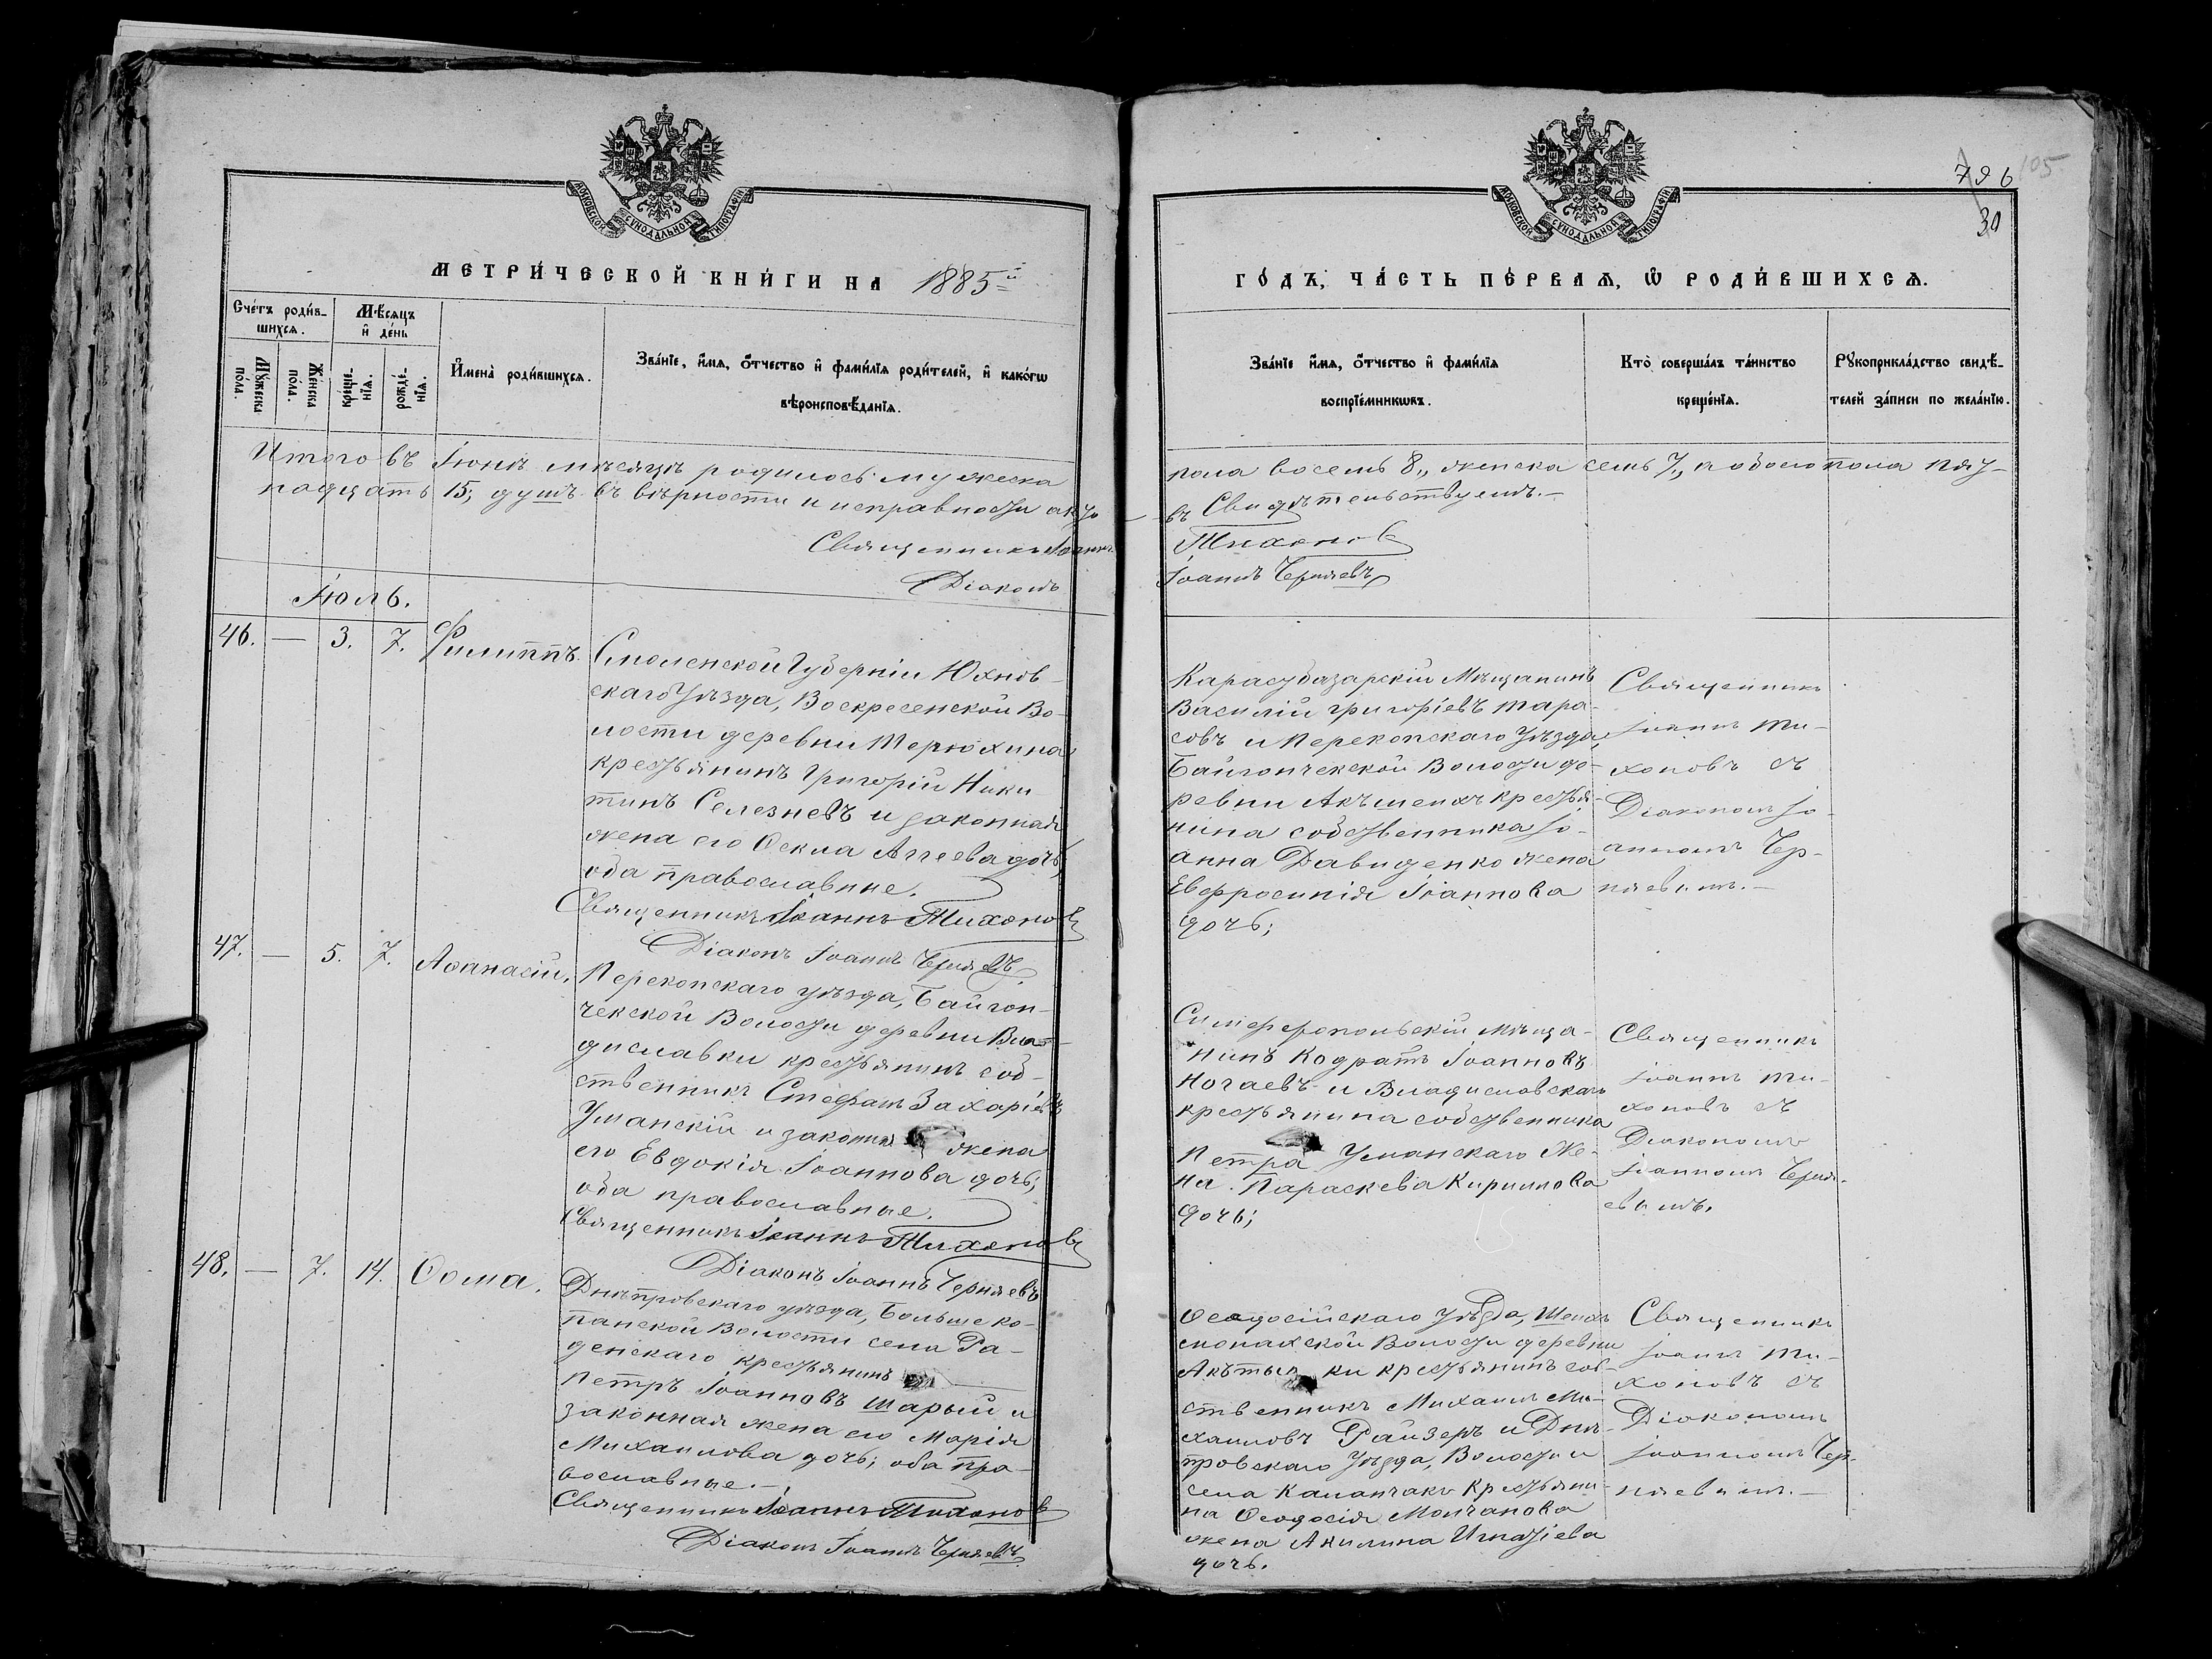 МОСКОВСКОЙ СѴНОДАЛЬНОЙ ТИПОГРАФІИ
МЕТРИ́ЧЕСКОЙ КНИ́ГИ НА 1885й
Сче́тъ роди́в-
шихсѧ.
Мѣ́сѧцъ
и҆ де́нь
Мꙋ́жеска
по́ла.
Же́нска
по́ла.
креще́-
нїѧ.
рожде́-
нїѧ.
И҆мена̀ роди́вшихсѧ.
Зва́нїе, и҆́мѧ, ѻ҆́тчество и҆ фами́лїѧ роди́телей, и҆ како́гѡ
вѣроисповѣ́данїѧ.
Итого въ Іюнѣ мѣсяцѣ родилось: мужеска
надцать 15; душъ въ вѣрности и исправности
Священникъ Іоаннъ
Діаконъ
Іюль.
46. — 3. 7. Филиппъ.
Смоленской Губерніи Юхнов-
скаго Уѣзда, Воскресенской Во-
лости деревни Терюхина
крестьянинъ Григорій Ники-
тинъ Селезневъ и законная
жена его Ѳекла Аггеева дочь,
оба православные.
Священникъ Іоаннъ Тихоновъ
Діаконъ Іоаннъ Черняевъ
47. — 5. 7. Аѳанасій.
Перекопскаго уѣзда, Байгон-
чекской Волости деревни Вла-
диславки крестьянинъ соб-
ственникъ Стефанъ Захаріевъ
Уманскій и законная жена
его Евдокія Іоаннова дочь;
оба православные.
Священникъ Іоаннъ Тихоновъ
Діаконъ Іоаннъ Черняевъ
48. — 7. 14. Ѳома.
Днѣпровскаго уѣзда, Больше ко-
панской Волости села Ра-
денскаго крестьянинъ
Петръ Іоанновъ Шарый и
законная жена его Марія
Михаилова дочь; оба пра-
вославные.—
Священникъ Іоаннъ Тихонов
Діаконъ Іоаннъ Черняевъ
796 105
30
МОСКОВСКОЙ СѴНОДАЛЬНОЙ ТИПОГРАФІИ
ГО́ДЪ, ЧА́СТЬ ПЕ́РВАѦ, Ѡ҆ РОДИ́ВШИХСѦ.
Зва́нїе и҆́мѧ, ѻ҆́тчество и҆ фами́лїѧ
воспрїе́мникѡвъ.
Кто̀ соверша́лъ та́инство
креще́нїѧ.
Рꙋкоприкла́дство свидѣ́-
телей за́писи по жела́нїю.
пола восемь 8,, женска семь 7,, а обоего пола пят-
въ Свидѣтельствуемъ.—
Тихонов
Іоаннъ Черняевъ
Карасубазарскій Мѣщанинъ
Василій Григоріевъ Тара-
совъ и Перекопскаго Уѣзда,
Байгончекской Волости де-
ревни Акъшеихъ крестья-
нина собственника Іо-
анна Давиденко жена
Евфросинія Іоаннова
дочь;
Священникъ
Іоаннъ Ти-
хоновъ съ
Діакономъ Іо-
анномъ Чер-
няевымъ.—
Симферопольскій мѣща-
нинъ Кодратъ Іоанновъ
Ногаевъ и Владиславскаго
крестьянина собственника
Петра Уманскаго Же-
на Параскева Кириллова
дочь;
Священникъ
Іоаннъ Ти-
хоновъ съ
Діакономъ
Іоанномъ Черня-
евымъ.
Ѳеодосійскаго Уѣзда,
Волости деревни
крестьянинъ соб-
ственникъ Михаилъ Ми-
хаиловъ Райзеръ и Днѣ-
провскаго Уѣзда, Волости и
села Каланчакъ Крестьяни-
на Ѳеодосія Молчанова
жена Акилина Игнатіева
дочь.
Священникъ
Іоаннъ Ти-
хоновъ съ
Діакономъ
Іоанномъ Чер-
няевымъ.—